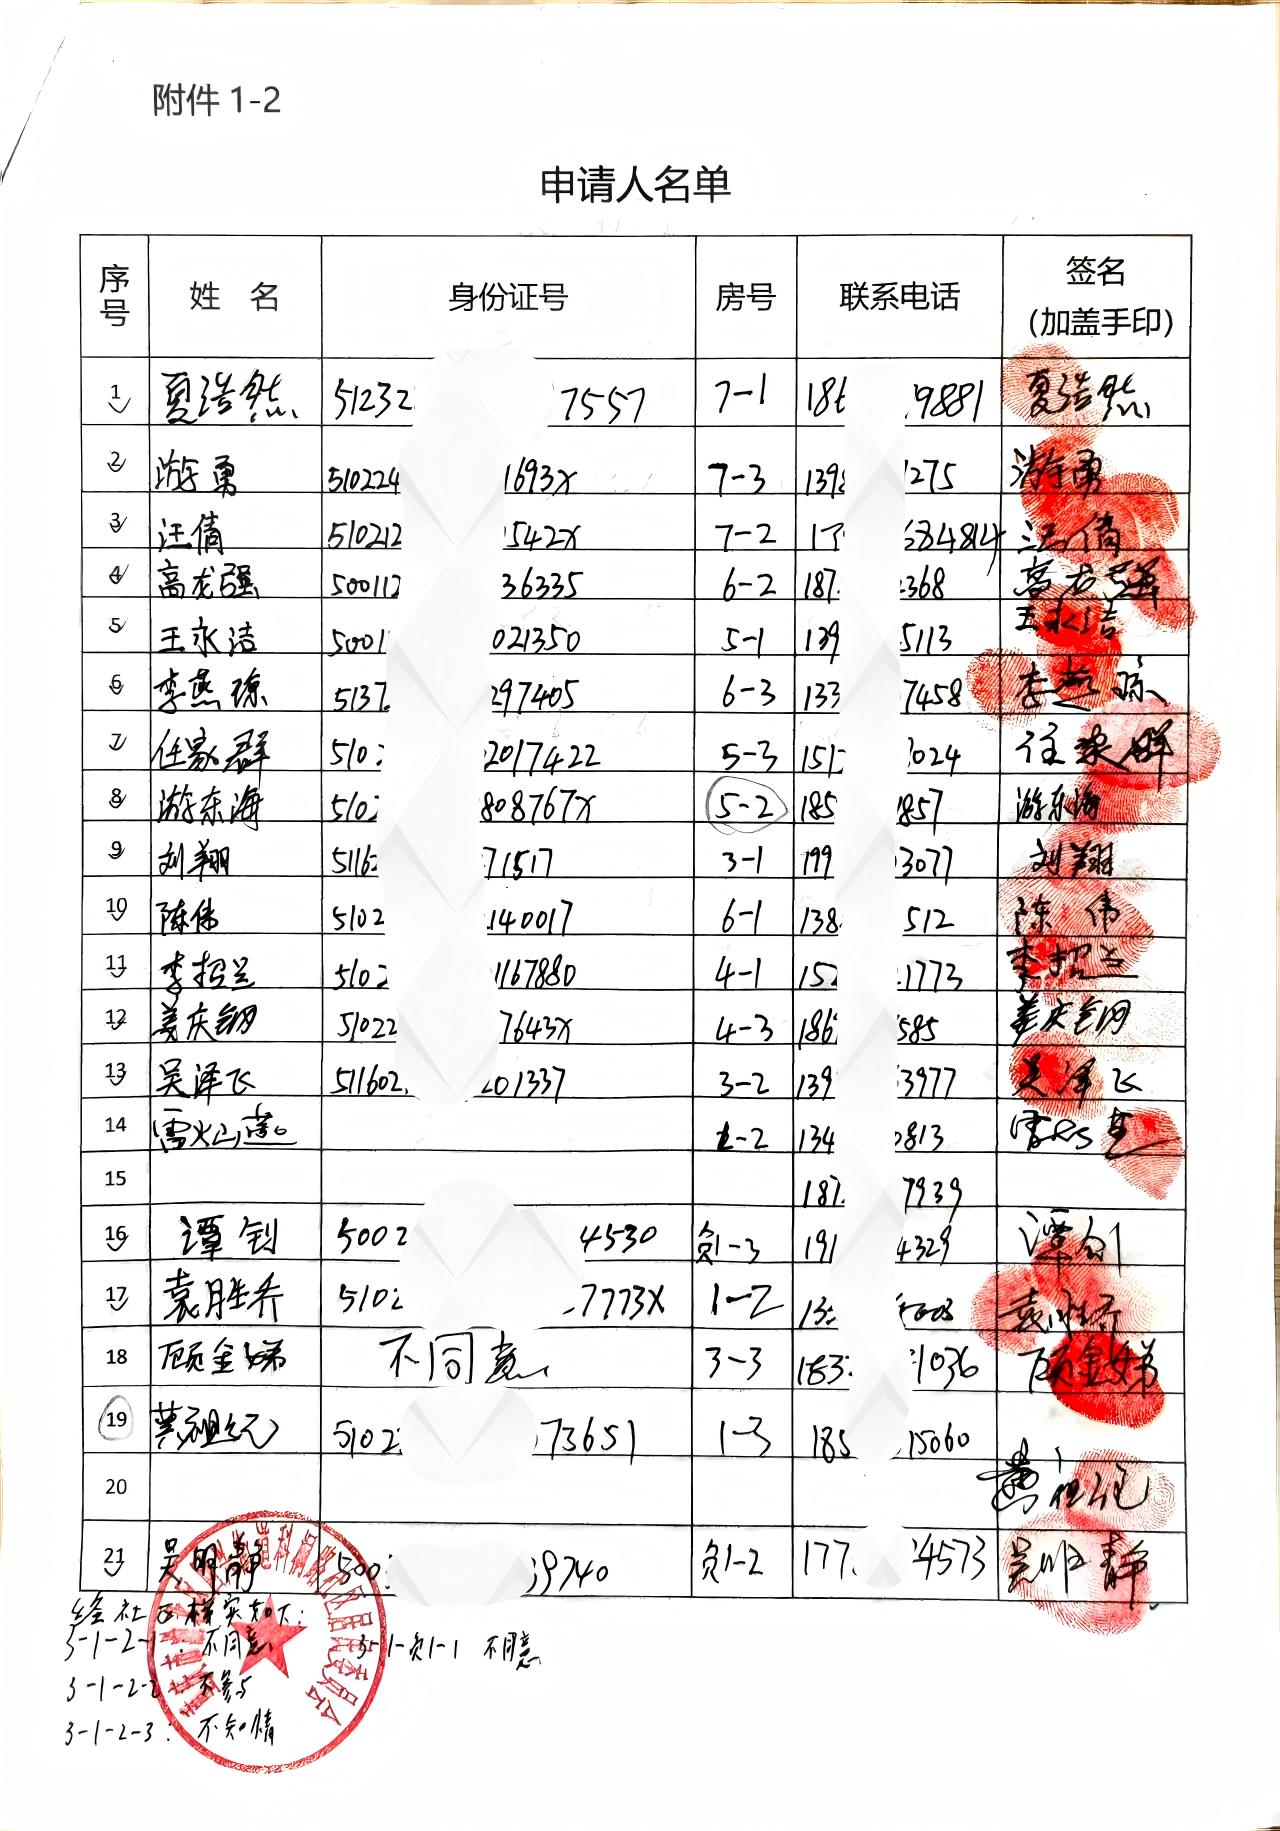 附件 1-2
申请人名单
序号 姓 名 身份证号 房号 联系电话 签名(加盖手印)
1 夏浩然 51232 7557 7-1 186 9881 夏浩然
2 游勇 510224 1693X 7-3 139 1275 游勇
3 汪倩 510212 542X 7-2 17 84814 汪倩
4 高龙强 500112 36335 6-2 187 368 高龙强
5 王永洁 5001 021350 5-1 139 5113 王永洁
6 李燕琼 5137 297405 6-3 133 7458 李燕琼
7 任家群 510 2017422 5-3 151 024 任家群
8 游东海 510 808767X 5-2 185 857 游东海
9 刘翔 5116 71517 3-1 199 3077 刘翔
10 陈伟 5102 140017 6-1 138 512 陈伟
11 李招兰 5102 1167880 4-1 152 1773 李招兰
12 姜庆钢 51022 7643X 4-3 186 585 姜庆钢
13 吴泽飞 511602 201337 3-2 139 3977 吴泽飞
14 -2 134 0813
15 187 7939
16 谭钊 5002 4530 负1-3 191 4329 谭钊
17 袁胜乔 5102 7773X 1-2 13 袁胜乔
18 顾金娣 不同意 3-3 183 1036 顾金娣
19 黄祖纪 5102 73651 1-3 185 15060
20 黄祖纪
21 吴明静 500 9740 负1-2 177 4573 吴明静
经社区核实如下:
3-1-2-1: 不同意 3-1-负1-1 不同意
3-1-2-2 不参与
3-1-2-3: 不知情